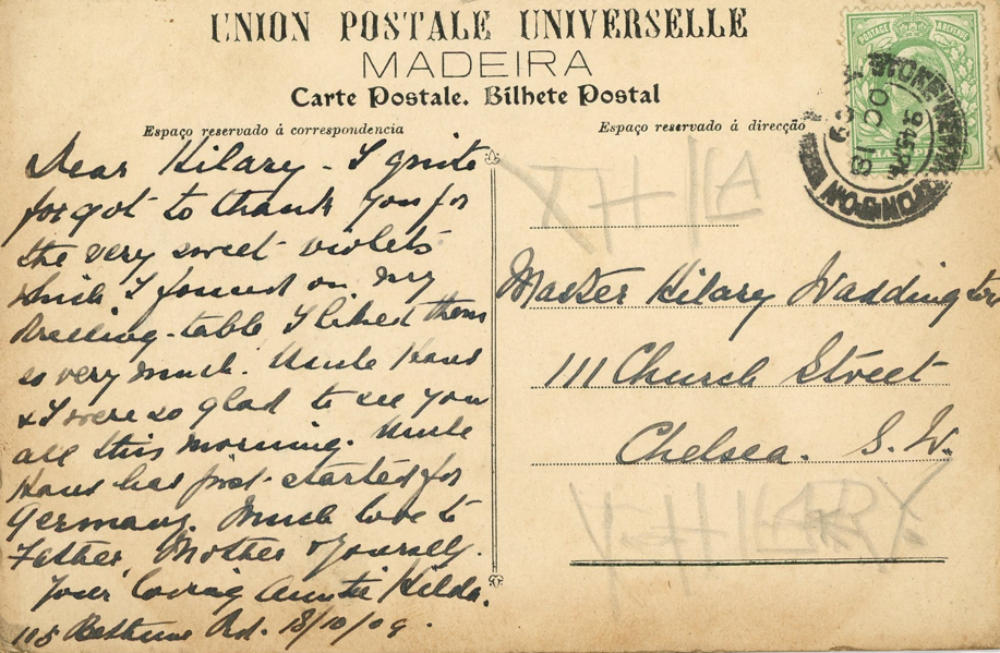 UNION POSTALE UNIVERSELLE
MADEIRA
Carte Postale. Bilhete Postal
Espaço reservado á correspondencia
Espaço reservado á direcção
Dear Hilary - I quite
forgot to thank you for
the very sweet violets
which I found on my
dressing-table I liked them
so very much. Uncle Hans
& I were so glad to see you
all this morning. Uncle
Hans has just started for
Germany. Much love to
Father, Mother & Yourself.
Your loving Auntie Hilda.
105 Bethune Rd. 18/10/09.
POSTAGE & REVENUE
STOKE NEWINGTON
9.45 PM
OC 18
09
Master Hilary Waddington
111 Church Street
Chelsea. S.W.
HILARY